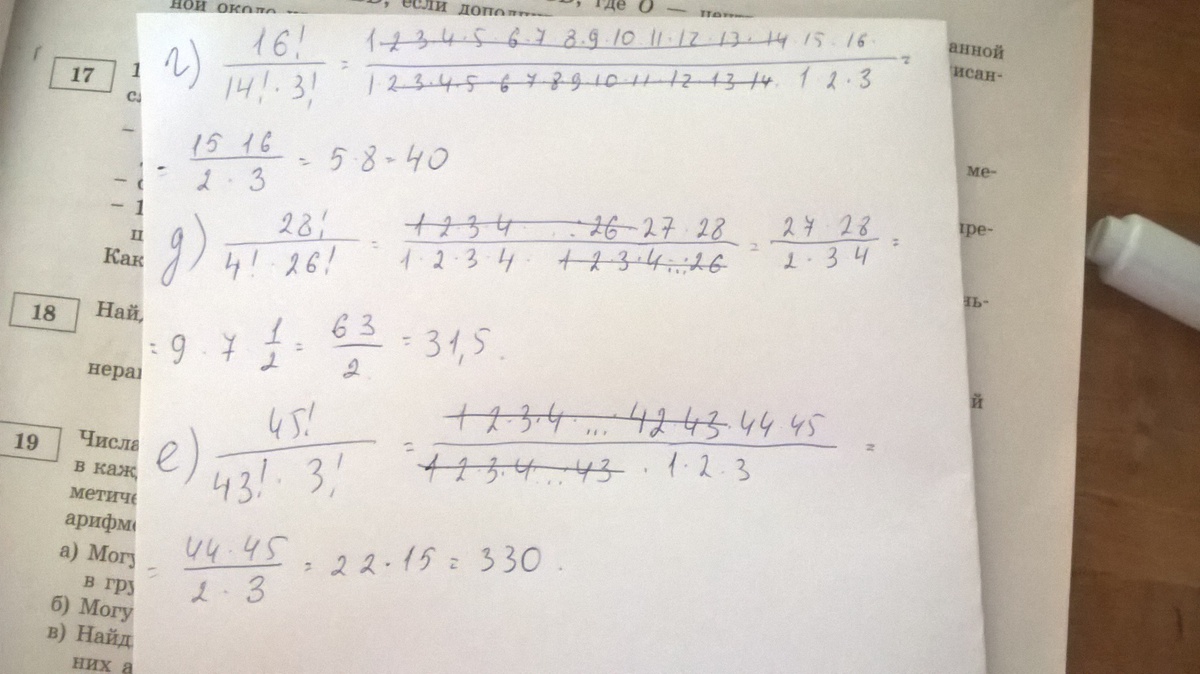 ной около
если дополн
где O —
17
анной
исан-
ме-
пре-
Как
18
Най
нь-
нера
й
19
Числа
в каж
метиче
арифме
а) Могу
в гру
б) Могу
в) Найд
них а
г) 16! / 14! · 3! = 1·2·3·4·5·6·7 8·9·10·11·12·13·14·15·16 / 1·2·3·4·5 6 7 8·9·10·11·12 13 14 · 1 2·3 =
= 15 16 / 2 · 3 = 5·8 = 40
д) 28! / 4! · 26! = 1·2·3·4 · ... ·26·27·28 / 1·2·3·4 · 1·2·3·4...26 = 27·28 / 2·3 4 =
= 9 · 7 · 1/2 = 63/2 = 31,5.
е) 45! / 43! · 3! = 1·2·3·4·...·42·43·44·45 / 1·2·3·4...43 · 1·2·3 =
= 44·45 / 2·3 = 22·15 = 330.